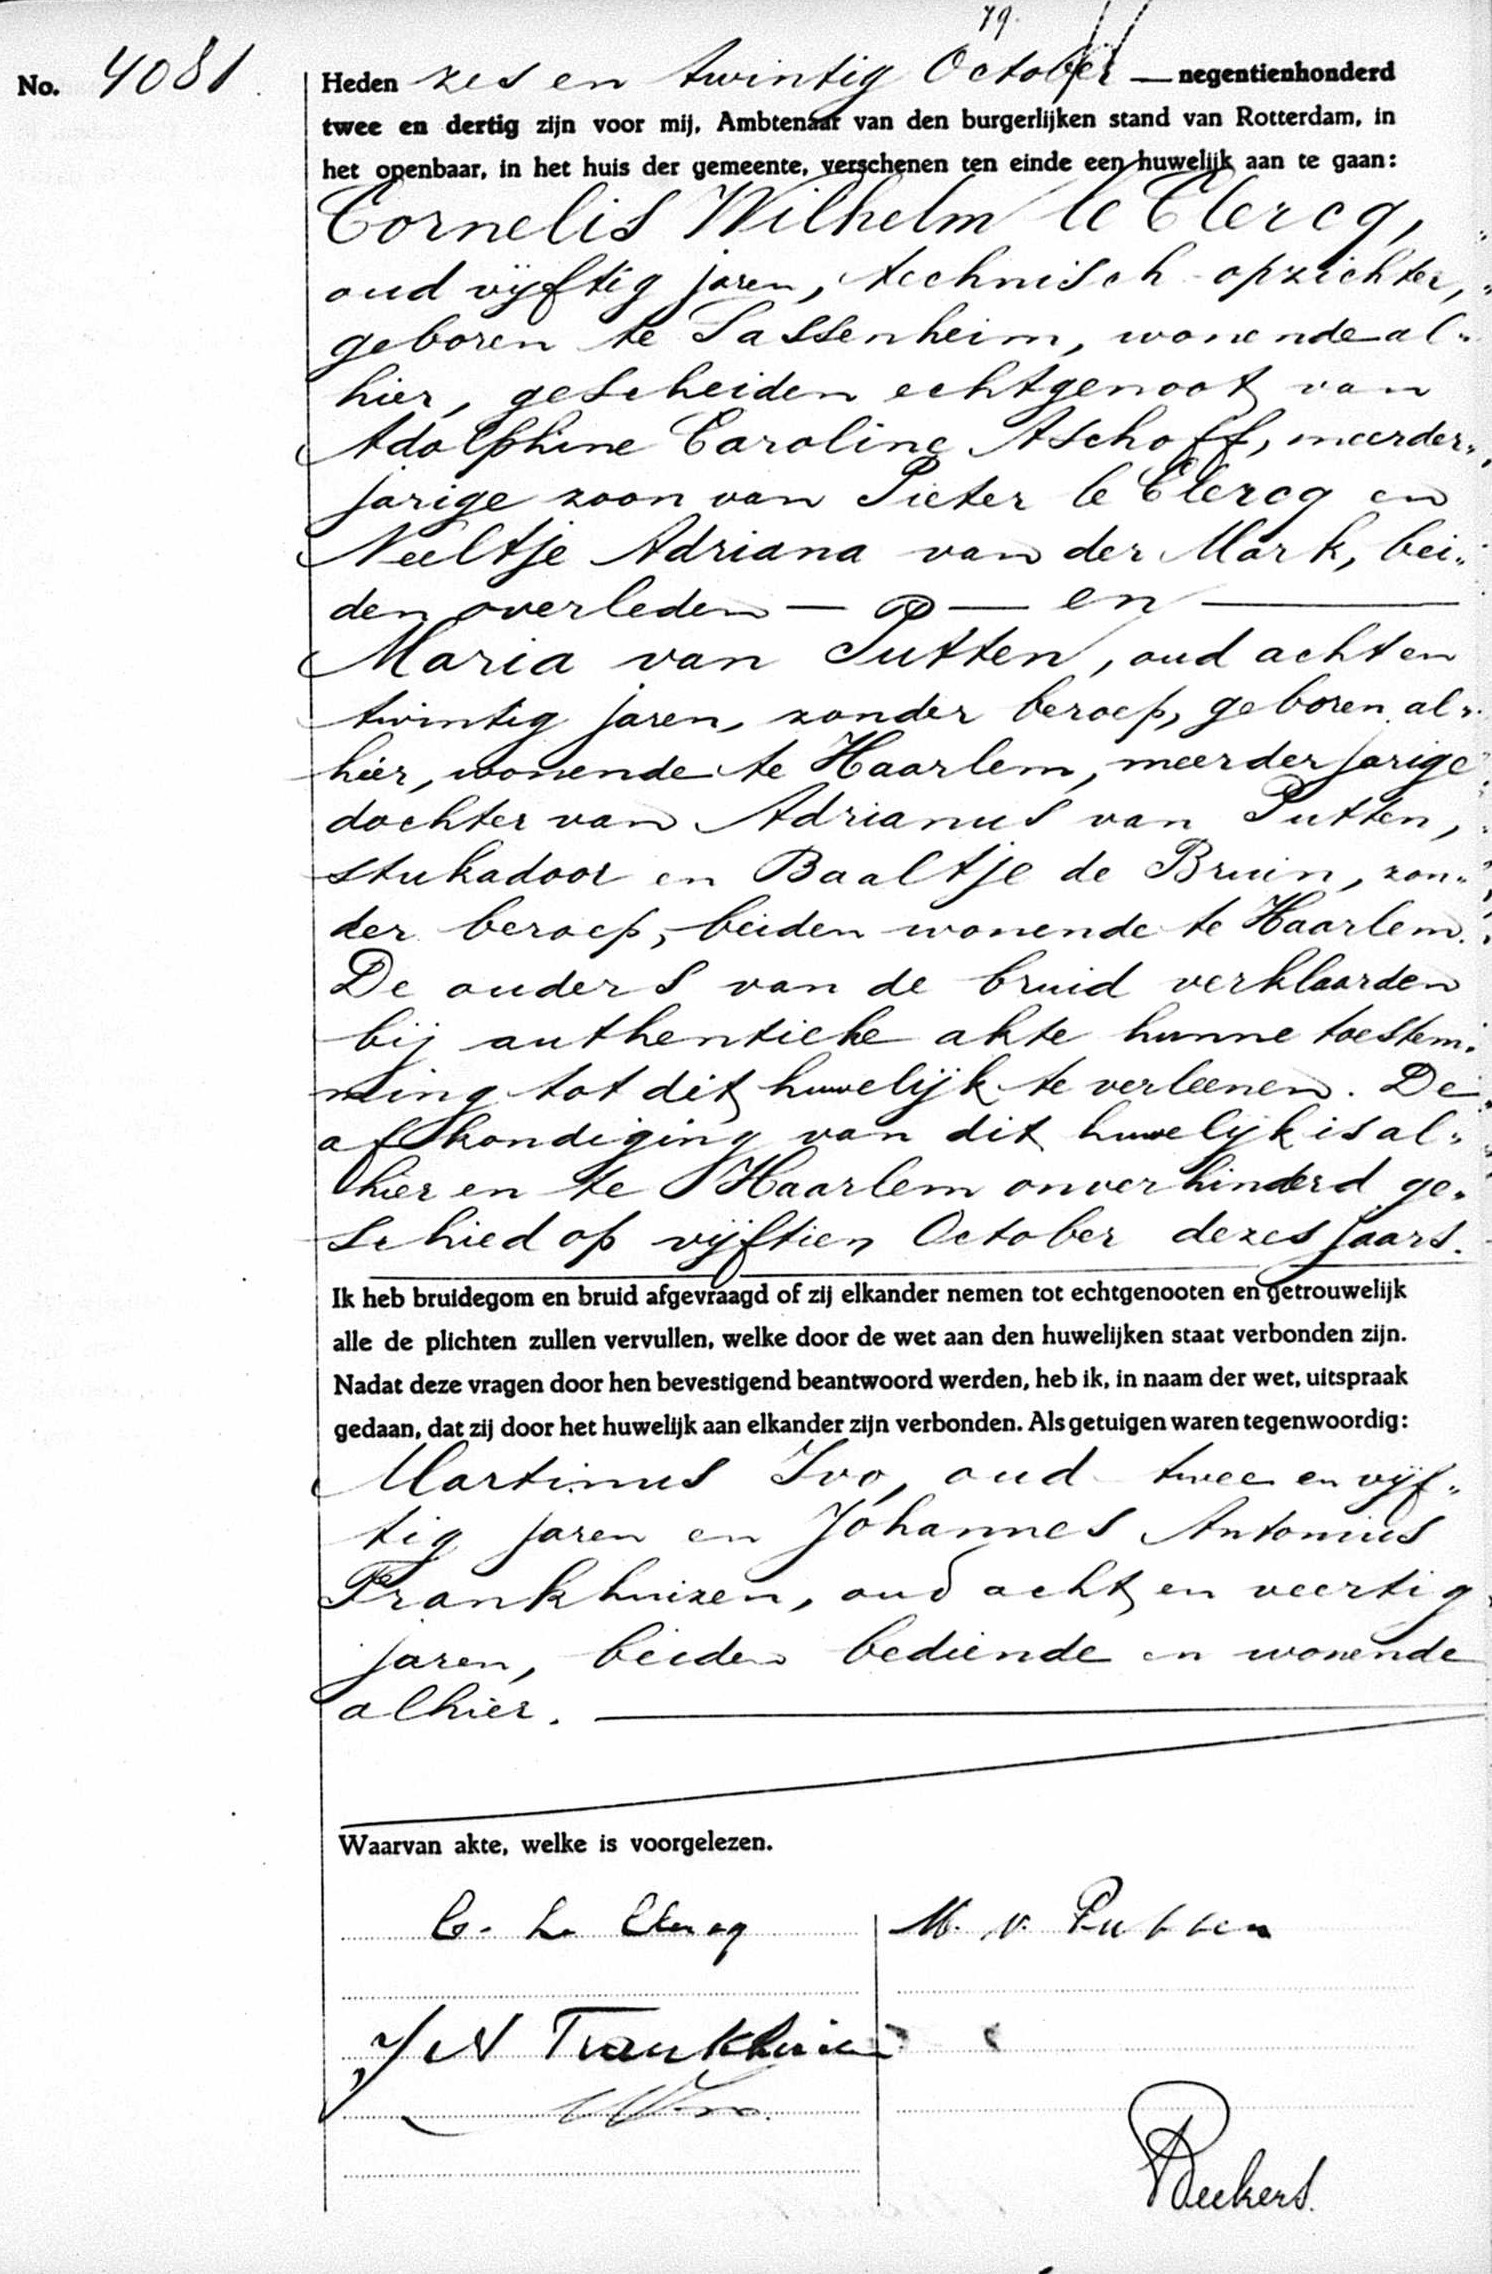 79.
No. 4081.
Heden zes en twintig October — negentienhonderd
twee en dertig zijn voor mij, Ambtenaar van den burgerlijken stand van Rotterdam, in
het openbaar, in het huis der gemeente, verschenen ten einde een huwelijk aan te gaan:
Cornelis Wilhelm le Clercq,
oud vijftig jaren, technisch opzichter,
geboren te Sassenheim, wonende al„
hier, gescheiden echtgenoot van
Adolphine Caroline Aschoff, meerder„
jarige zoon van Pieter le Clercq en
Neeltje Adriana van der Mark, bei„
den overleden — en —
Maria van Putten, oud acht en
twintig jaren, zonder beroep, geboren al„
hier, wonende te Haarlem, meerderjarige
dochter van Adrianus van Putten,
stukadoor en Baaltje de Bruin, zon„
der beroep, beiden wonende te Haarlem.
De ouders van de bruid verklaarden
bij authentieke akte hunne toestem„
ming tot dit huwelijk te verleenen. De
afkondiging van dit huwelijk is al„
hier en te Haarlem onverhinderd ge„
schied op vijftien October dezes jaars.
Ik heb bruidegom en bruid afgevraagd of zij elkander nemen tot echtgenooten en getrouwelijk
alle de plichten zullen vervullen, welke door de wet aan den huwelijken staat verbonden zijn.
Nadat deze vragen door hen bevestigend beantwoord werden, heb ik, in naam der wet, uitspraak
gedaan, dat zij door het huwelijk aan elkander zijn verbonden. Als getuigen waren tegenwoordig:
Martinus Ivo, oud twee en vijf„
tig jaren en Johannes Antonius
Frankhuizen, oud acht en veertig
jaren, beiden bediende en wonende
alhier.
Waarvan akte, welke is voorgelezen.
C. le Clercq M. v. Putten
J A Frankhuizen
Deckers.